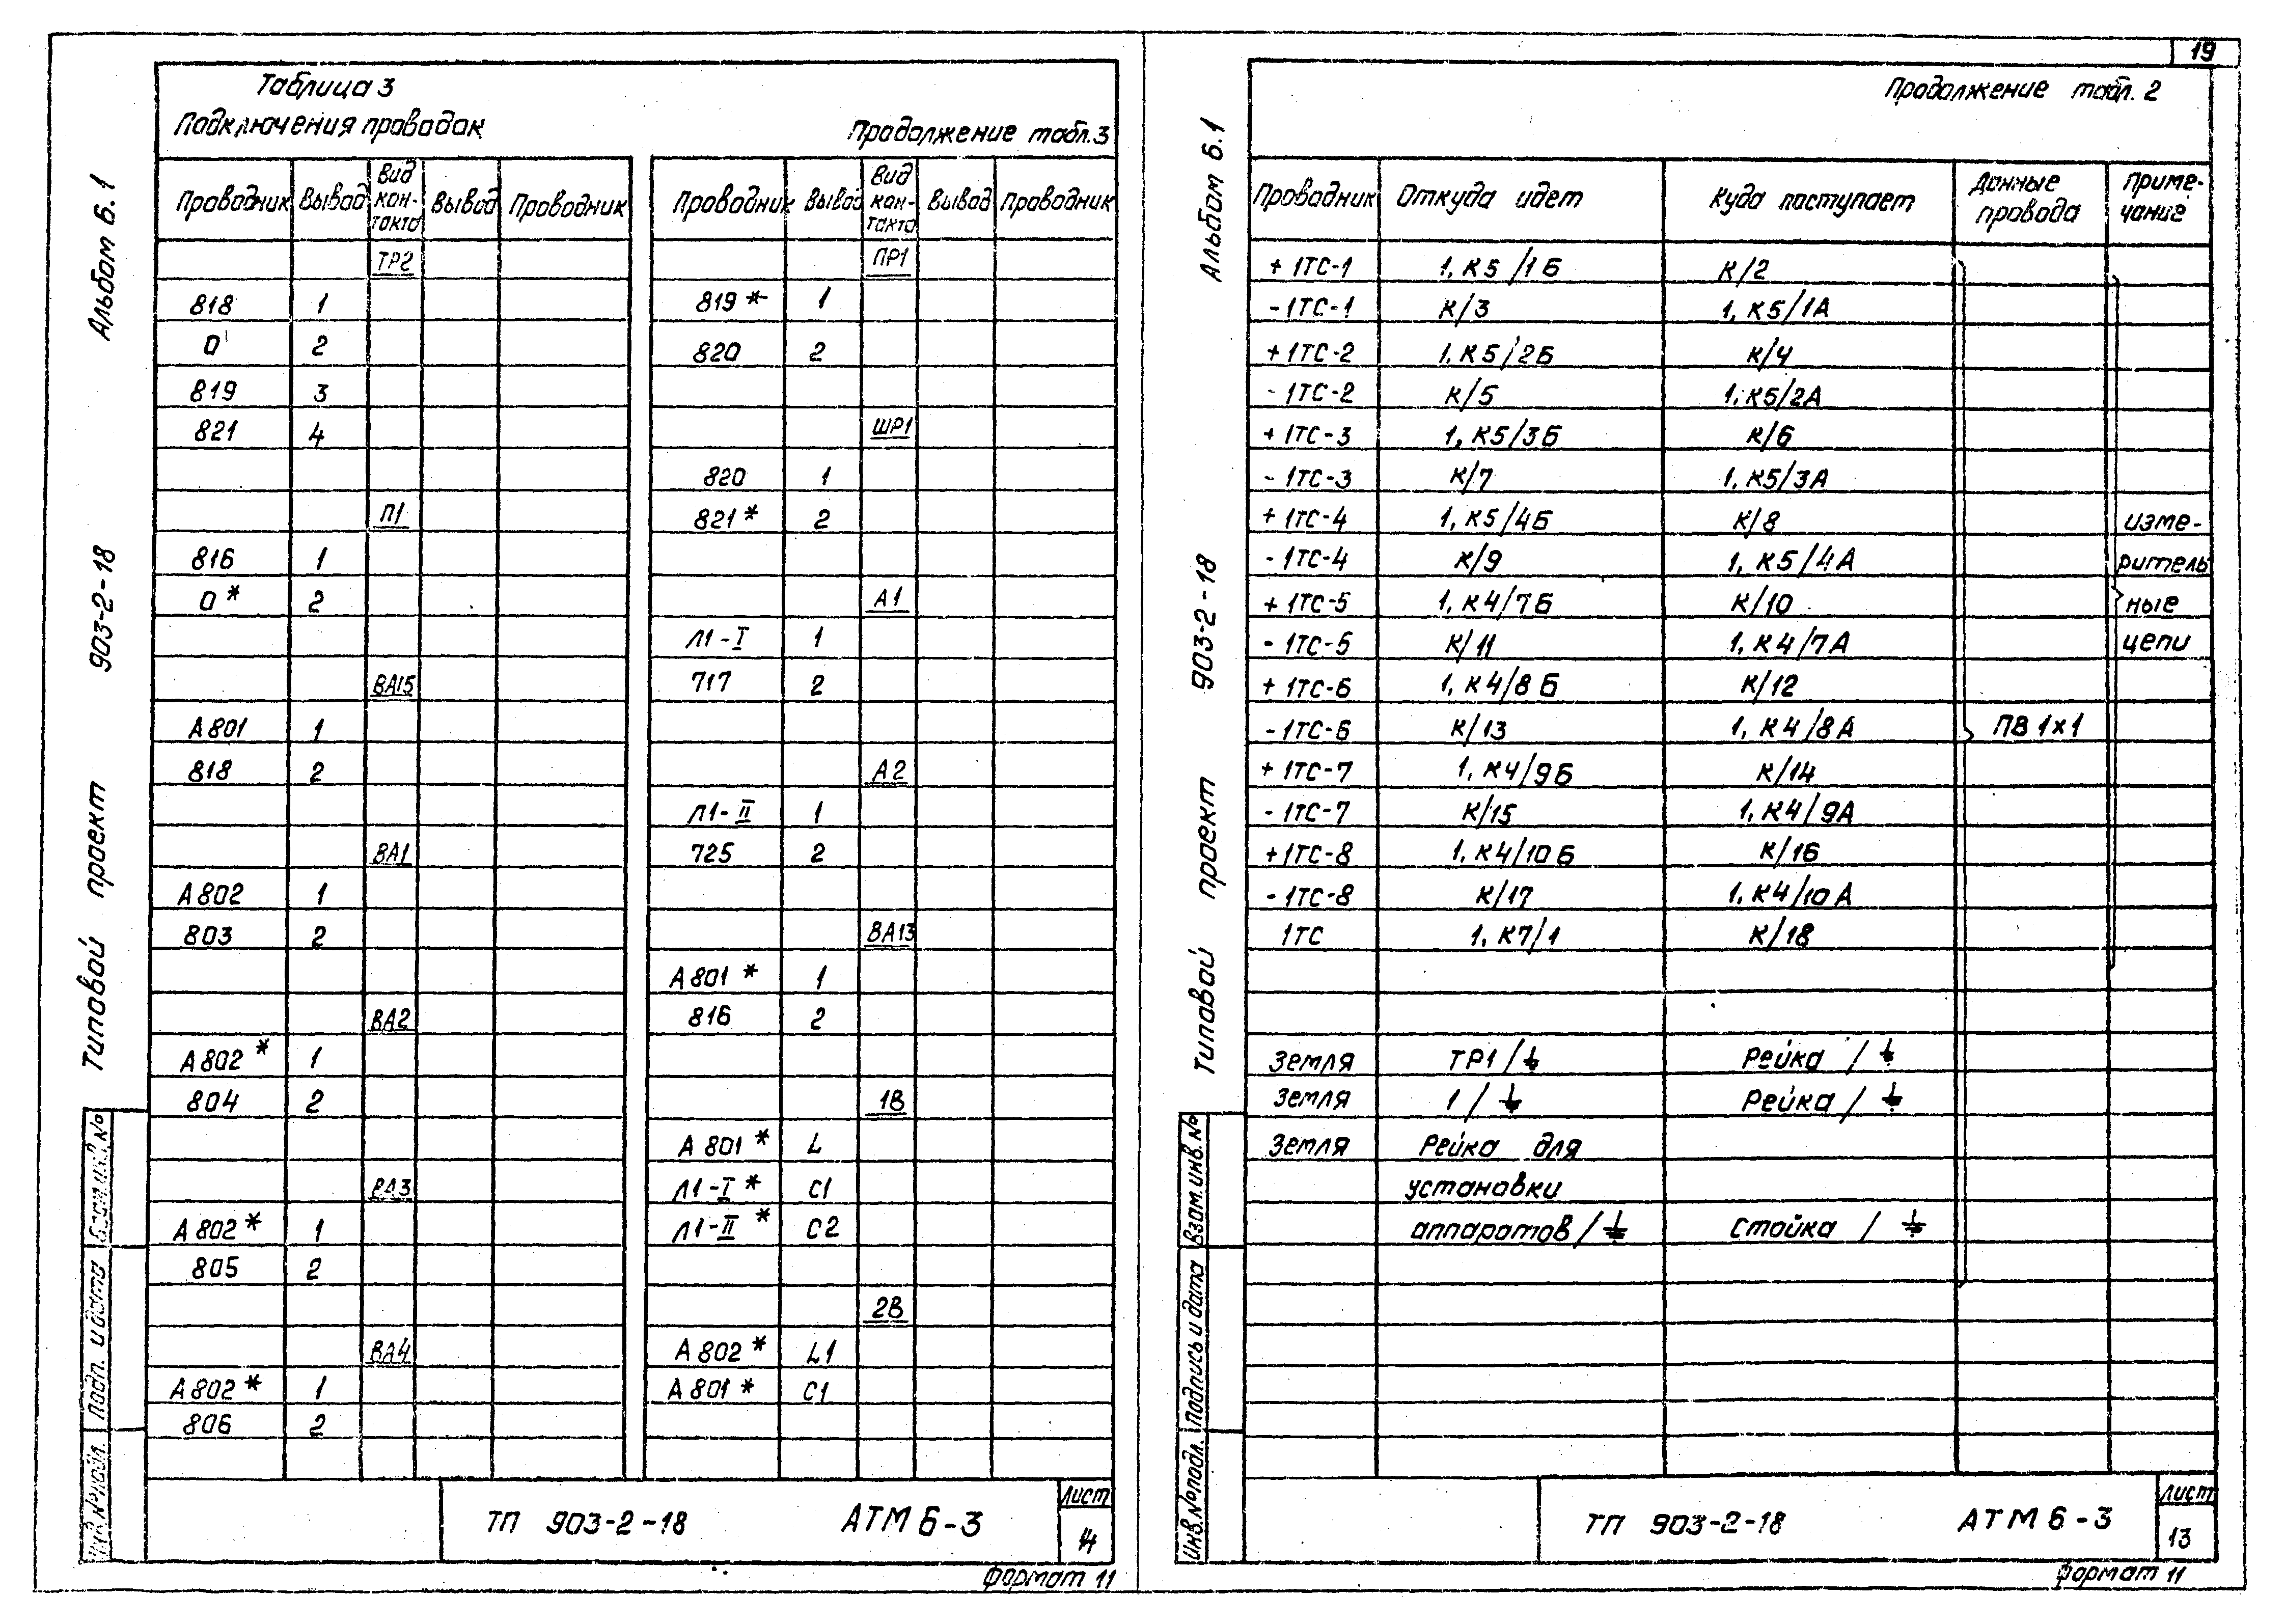 Таблица 3
Подключения проводок
Продолжение табл.3
Проводник Вывод Вид кон-такта Вывод Проводник
ТР2
818 1
0 2
819 3
821 4
П1
816 1
0* 2
ВА15
А801 1
818 2
ВА1
А802 1
803 2
ВА2
А802* 1
804 2
ВА3
А802* 1
805 2
ВА4
А802* 1
806 2
Проводник Вывод Вид кон-такта Вывод Проводник
ПР1
819* 1
820 2
ШР1
820 1
821* 2
А1
Л1-I 1
717 2
А2
Л1-II 1
725 2
ВА13
А801* 1
816 2
1В
А801* L
Л1-I* С1
Л1-II* С2
2В
А802* L1
А801* С1
ТП 903-2-18 АТМ6-3
Лист
Формат 11
Альбом 6.1
903-2-18
Типовой проект
Взам.инв.№
Подп. и дата
Инв.№подл.
19
Продолжение табл. 2
Проводник Откуда идет Куда поступает Данные провода Приме-чание
+1ТС-1 1, К5/1Б К/2
-1ТС-1 К/3 1, К5/1А
+1ТС-2 1, К5/2Б К/4
-1ТС-2 К/5 1, К5/2А
+1ТС-3 1, К5/3Б К/6
-1ТС-3 К/7 1, К5/3А
+1ТС-4 1, К5/4Б К/8 изме-
-1ТС-4 К/9 1, К5/4А ритель
+1ТС-5 1, К4/7Б К/10 ные
-1ТС-5 К/11 1, К4/7А цепи
+1ТС-6 1, К4/8Б К/12
-1ТС-6 К/13 1, К4/8А ПВ 1×1
+1ТС-7 1, К4/9Б К/14
-1ТС-7 К/15 1, К4/9А
+1ТС-8 1, К4/10Б К/16
-1ТС-8 К/17 1, К4/10А
1ТС 1, К7/1 К/18
Земля ТР1/⏚ Рейка /⏚
Земля 1/⏚ Рейка/⏚
Земля Рейка для
установки
аппаратов/⏚ Стойка /⏚
ТП 903-2-18 АТМ6-3
Лист
13
Формат 11
Альбом 6.1
903-2-18
Типовой проект
Взам.инв.№
Подпись и дата
Инв.№подл.